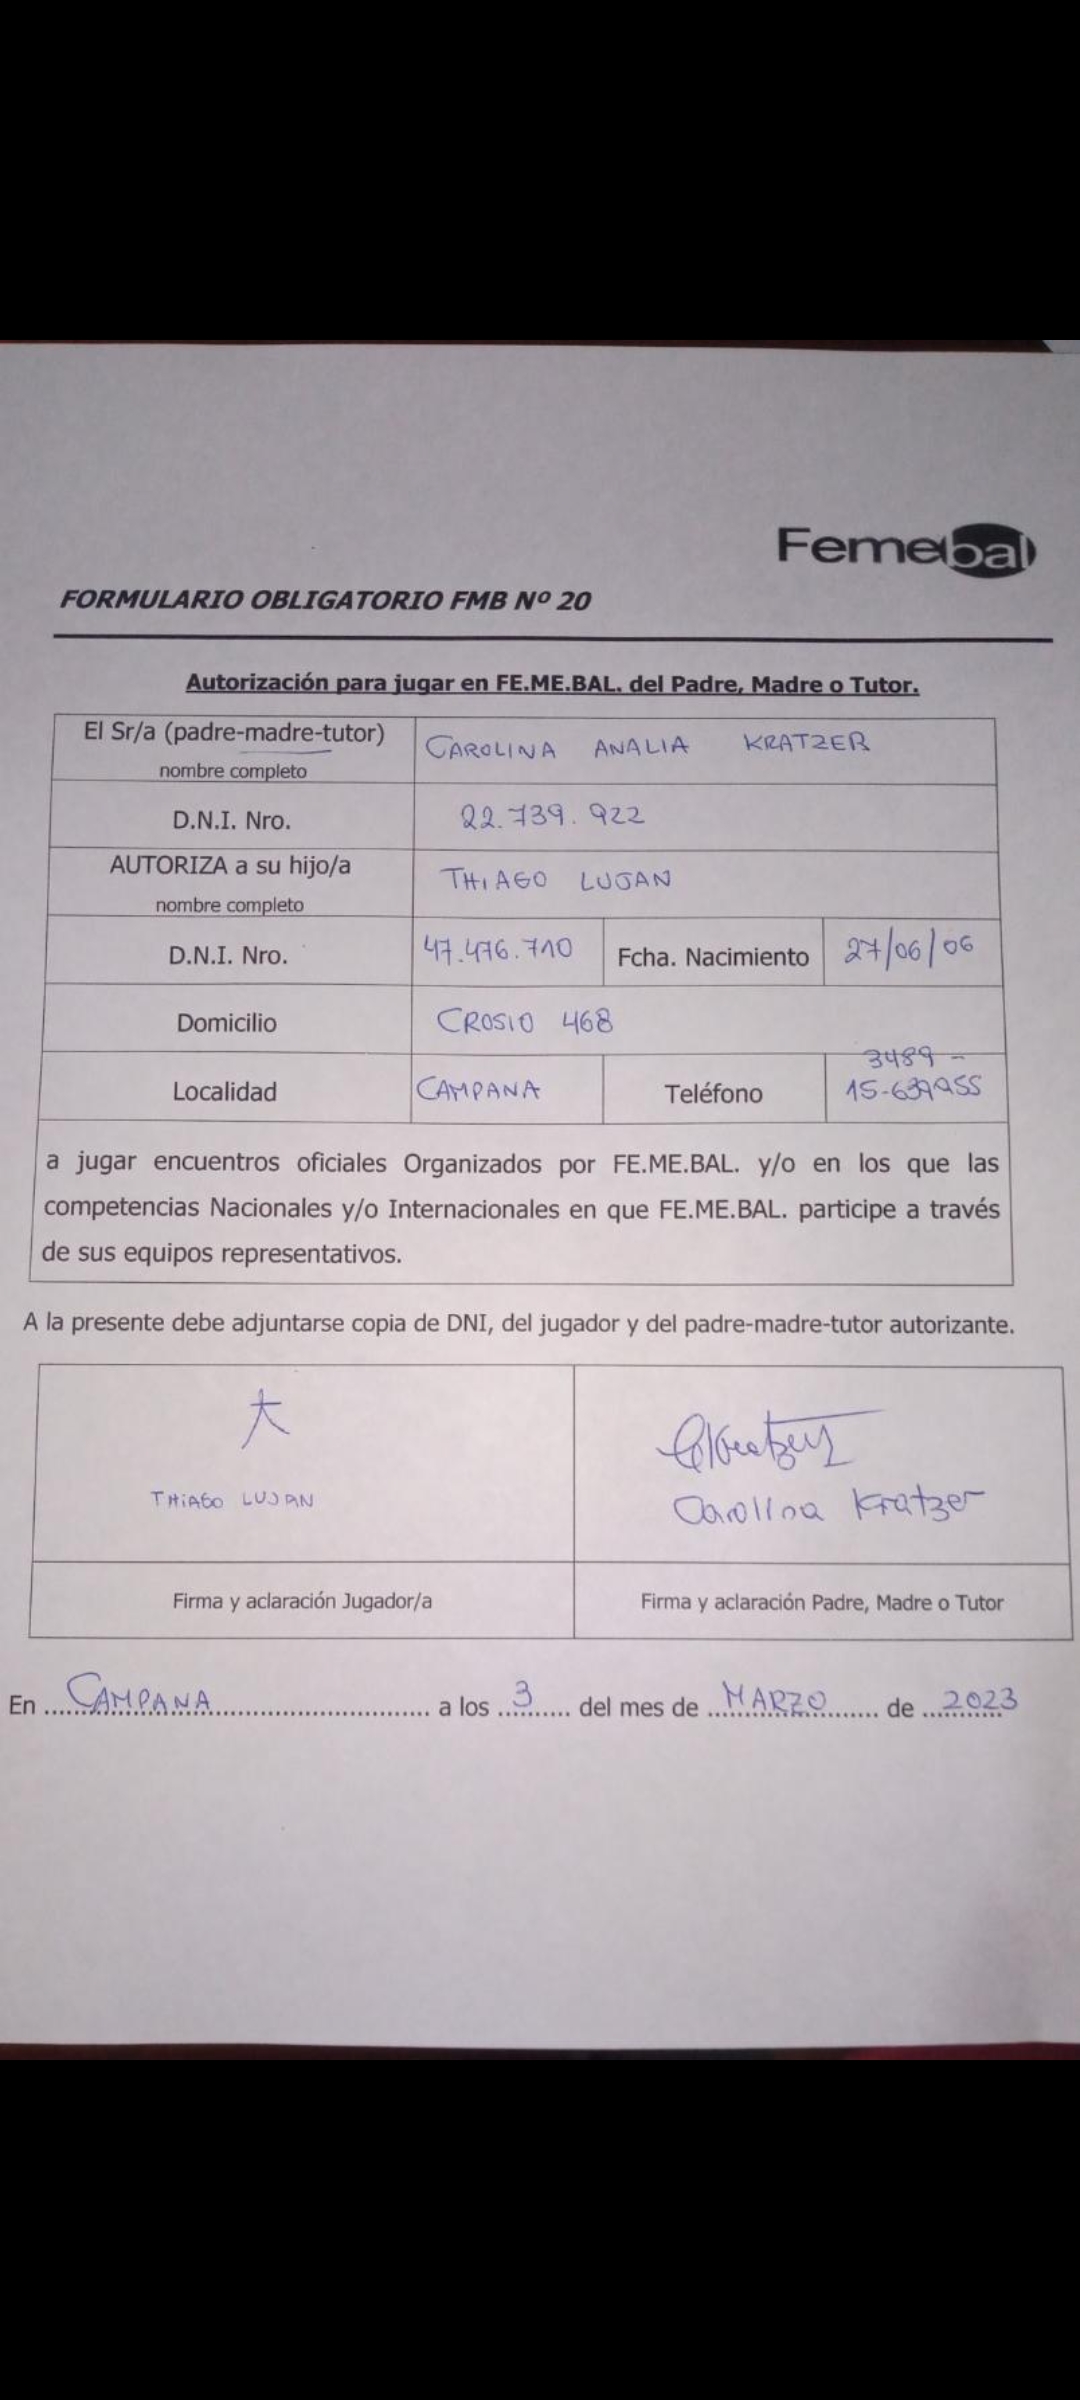 Femebal
FORMULARIO OBLIGATORIO FMB Nº 20
Autorización para jugar en FE.ME.BAL. del Padre, Madre o Tutor.
El Sr/a (padre-madre-tutor) CAROLINA ANALIA KRATZER
nombre completo
D.N.I. Nro. 22.739.922
AUTORIZA a su hijo/a THIAGO LUJAN
nombre completo
D.N.I. Nro. 47.476.710 Fcha. Nacimiento 27/06/06
Domicilio CROSIO 468
Localidad CAMPANA Teléfono 3489 -
a jugar encuentros oficiales Organizados por FE.ME.BAL. y/o en los que las
competencias Nacionales y/o Internacionales en que FE.ME.BAL. participe a través
de sus equipos representativos.
A la presente debe adjuntarse copia de DNI, del jugador y del padre-madre-tutor autorizante.
THIAGO LUJAN
Carolina Kratzer
Firma y aclaración Jugador/a Firma y aclaración Padre, Madre o Tutor
En CAMPANA a los 3 del mes de MARZO de 2023